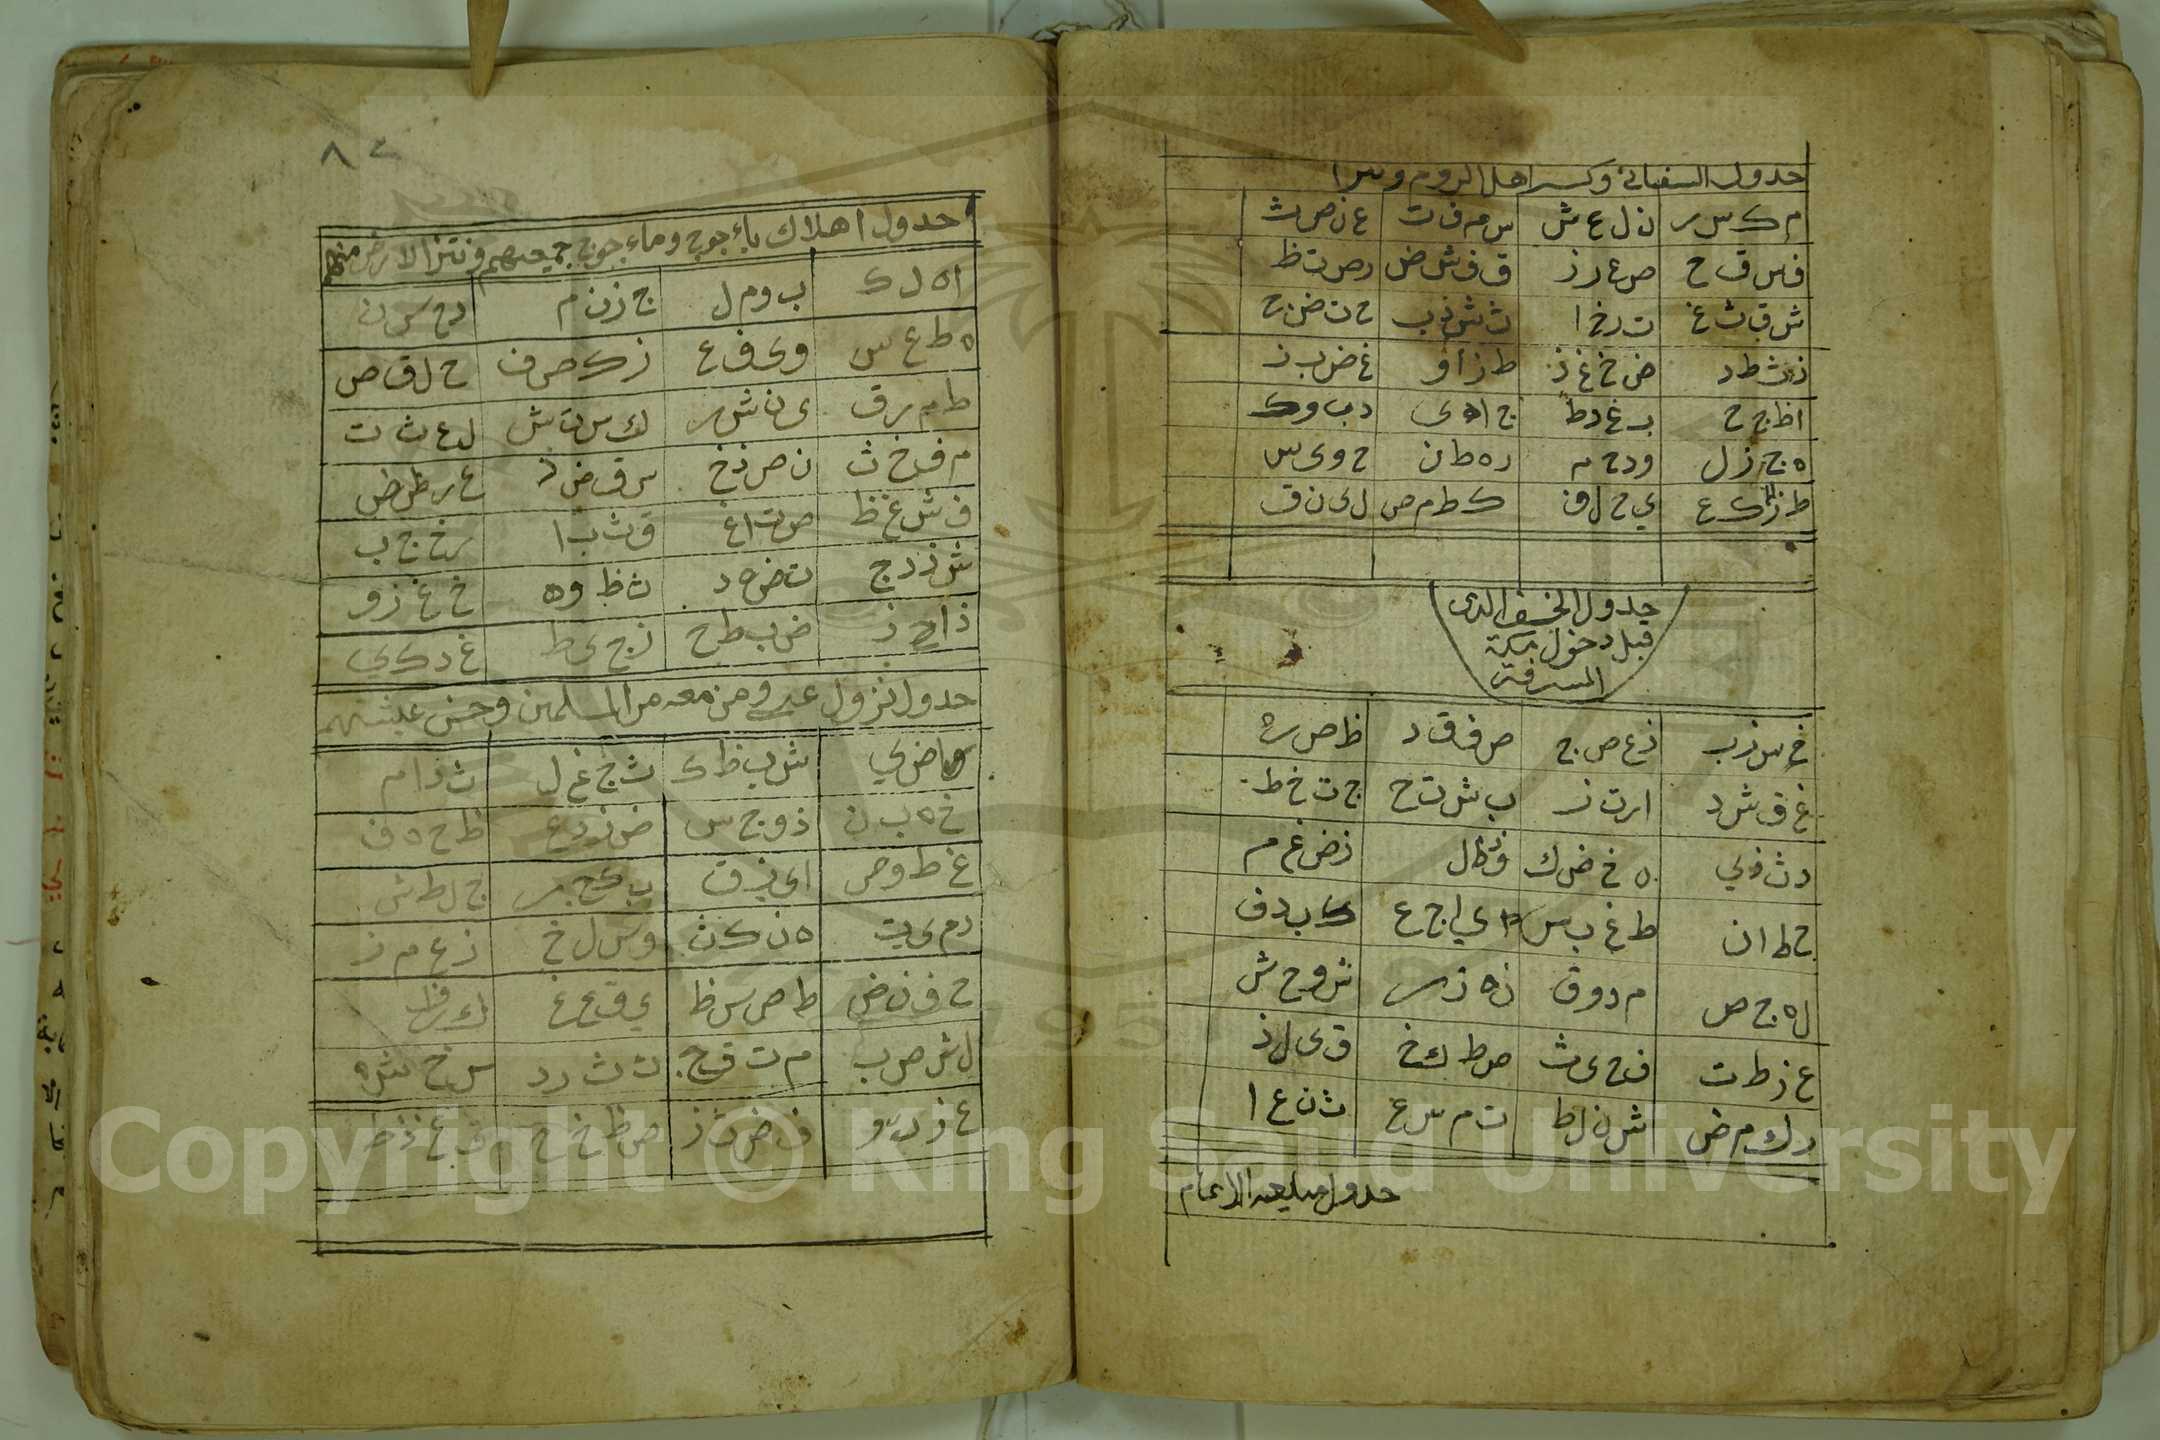 جدول السفياني وكسر اهل الروم وسرا
م ك س ر ن ل ع ش س م ف ت ع ن ص ث
ف س ق خ ص ع ر ز ق ف ش ض ر ص ت ظ
ش ق ث غ ت ر خ ا ث ش ذ ب خ ت ض ج
ذ ث ظ د ض خ غ ذ ظ ز ا و غ ض ب ز
ا ظ ج ح ب غ د ط ج ا ه ى د ب و ك
ه ج ز ل و د ح م ز ه ط ن ح و ى س
ط ز ك ع ي ح ل ف ك ط م ص ل ى ن ق
جدول الخسف الذى
قبل دخول مكة
المشرفة
خ س ز ب ذ ع ص ج ص ف ق د ظ ص ر ه
غ ق ش د ا ر ت ز ب ش ت ح ج ت خ ط
د ث ذ ي ه خ ض ك و ذ ظ ل ز ض غ م
ح ظ ا ن ط غ ب س ي ا ج ع ك ب د ف
ل ه ج ص م د و ق ن ه ز ر س و ح ش
ع ز ط ت ف ح ى ث ص ط ك خ ق ى ل ذ
ر ك م ض ش ن ل ظ ت م س غ ث ن ع ا
جدول مبايعه الامام
٨٤
جدول اهلاك ياءجوج وماءجوج جميعهم ونتن الارض منهم
ا ه ل ك ب و م ل ج ز ن م د ح س ن
ه ط ع س و ى ف ع ز ك ص ف ح ل ق ص
ط م ر ق ى ن ش ر ك س ت ش ل ع ث ت
م ف خ ث ن ص ذ خ س ق ض ذ ع ر ظ ض
ف ش غ ظ ص ت ا غ ق ث ب ا ر خ ج ب
ش ذ د ج ت ض ه د ث ظ و ه خ غ ز و
ذ ا ح ز ض ب ط ح ظ ج ى ط غ د ك ي
جدول نزول عيسى ومن معه من المسلمين وحسن عيشتهم
ر ا ض ي ش ب ظ ك ت ج غ ل ث د ا م
خ ه ب ن ذ و ج س ض ز د ع ظ ح ه ف
غ ط و ص ا ى ز ق ب ك ح ر ج ل ط ش
د م ى ت ه ن ك ث و س ل خ ز ع م ذ
ح ف ن ض ط ص س ظ ي ق ع غ ك ر ف ا
ل ش ص ب م ت ق ج ن ث ر د س خ ش ه
ع ذ ت و ف ض ث ز ص ظ خ ح ق غ ذ ط
Copyright © King Saud University
1957